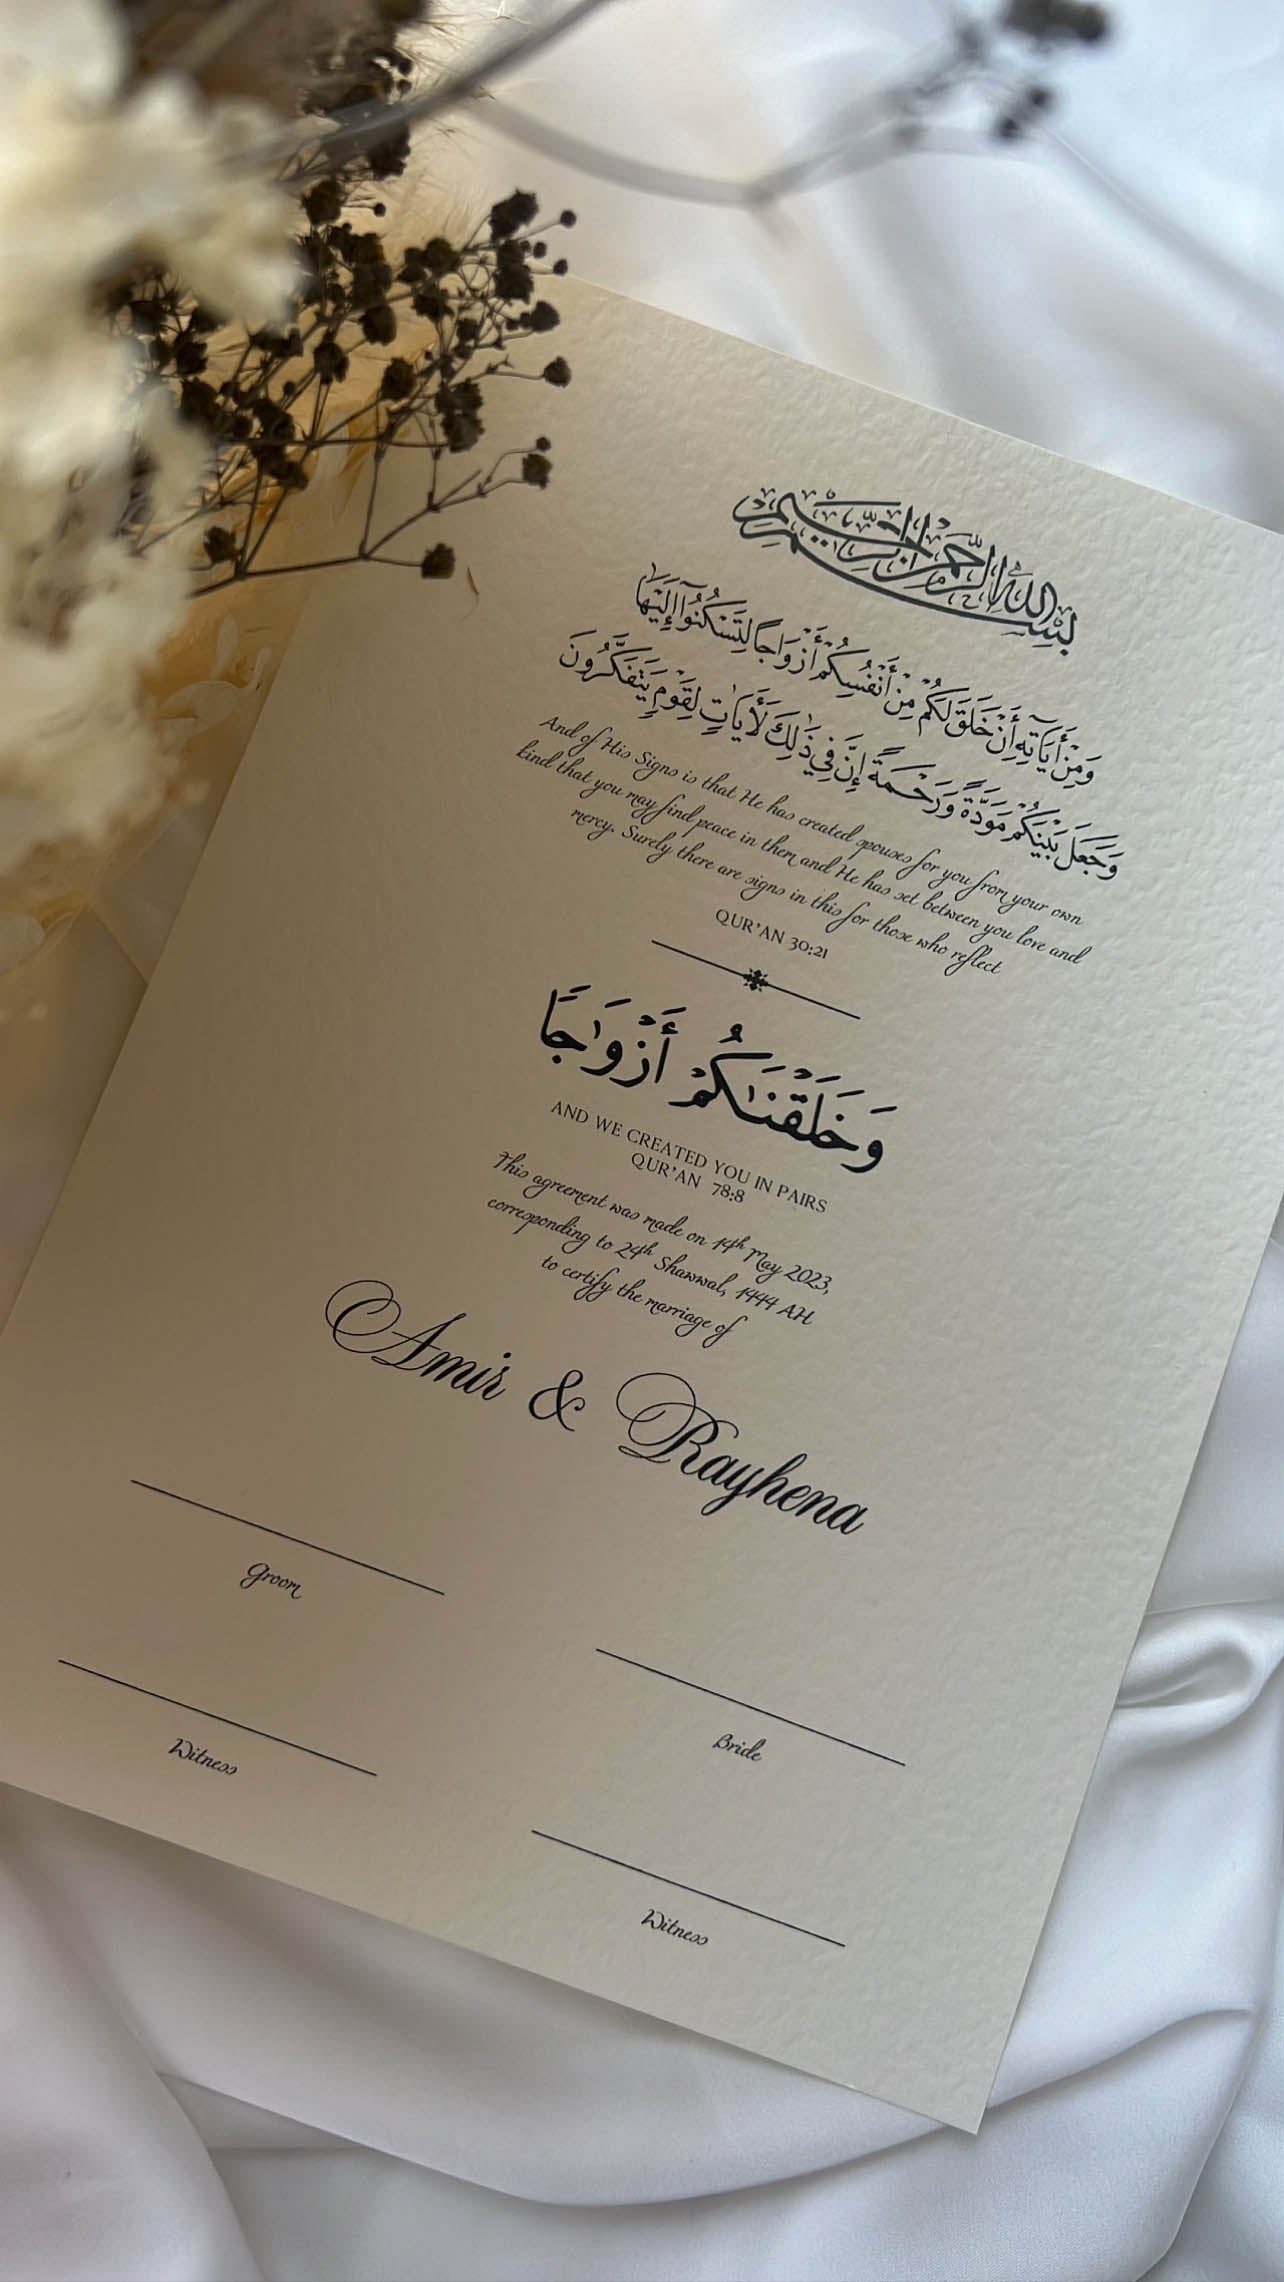 بِسْمِ اللهِ الرَّحْمٰنِ الرَّحِيمِ
وَمِنْ أَيَاتِهِ أَنْ خَلَقَ لَكُمْ مِنْ أَنْفُسِكُمْ أَزْوَاجًا لِتَسْكُنُوا إِلَيْهَا
وَجَعَلَ بَيْنَكُمْ مَوَدَّةً وَرَحْمَةً إِنَّ فِي ذٰلِكَ لَأَيَاتٍ لِقَوْمٍ يَتَفَكَّرُونَ
And of His Signs is that He has created spouses for you from your own
kind that you may find peace in them and He has set between you love and
mercy. Surely there are signs in this for those who reflect
QUR'AN 30:21
وَخَلَقْنَٰكُمْ أَزْوَٰجًا
AND WE CREATED YOU IN PAIRS
QUR'AN 78:8
This agreement was made on 14th May 2023,
corresponding to 24th Shawwal, 1444 AH
to certify the marriage of
Amir & Rayhena
Groom
Bride
Witness
Witness